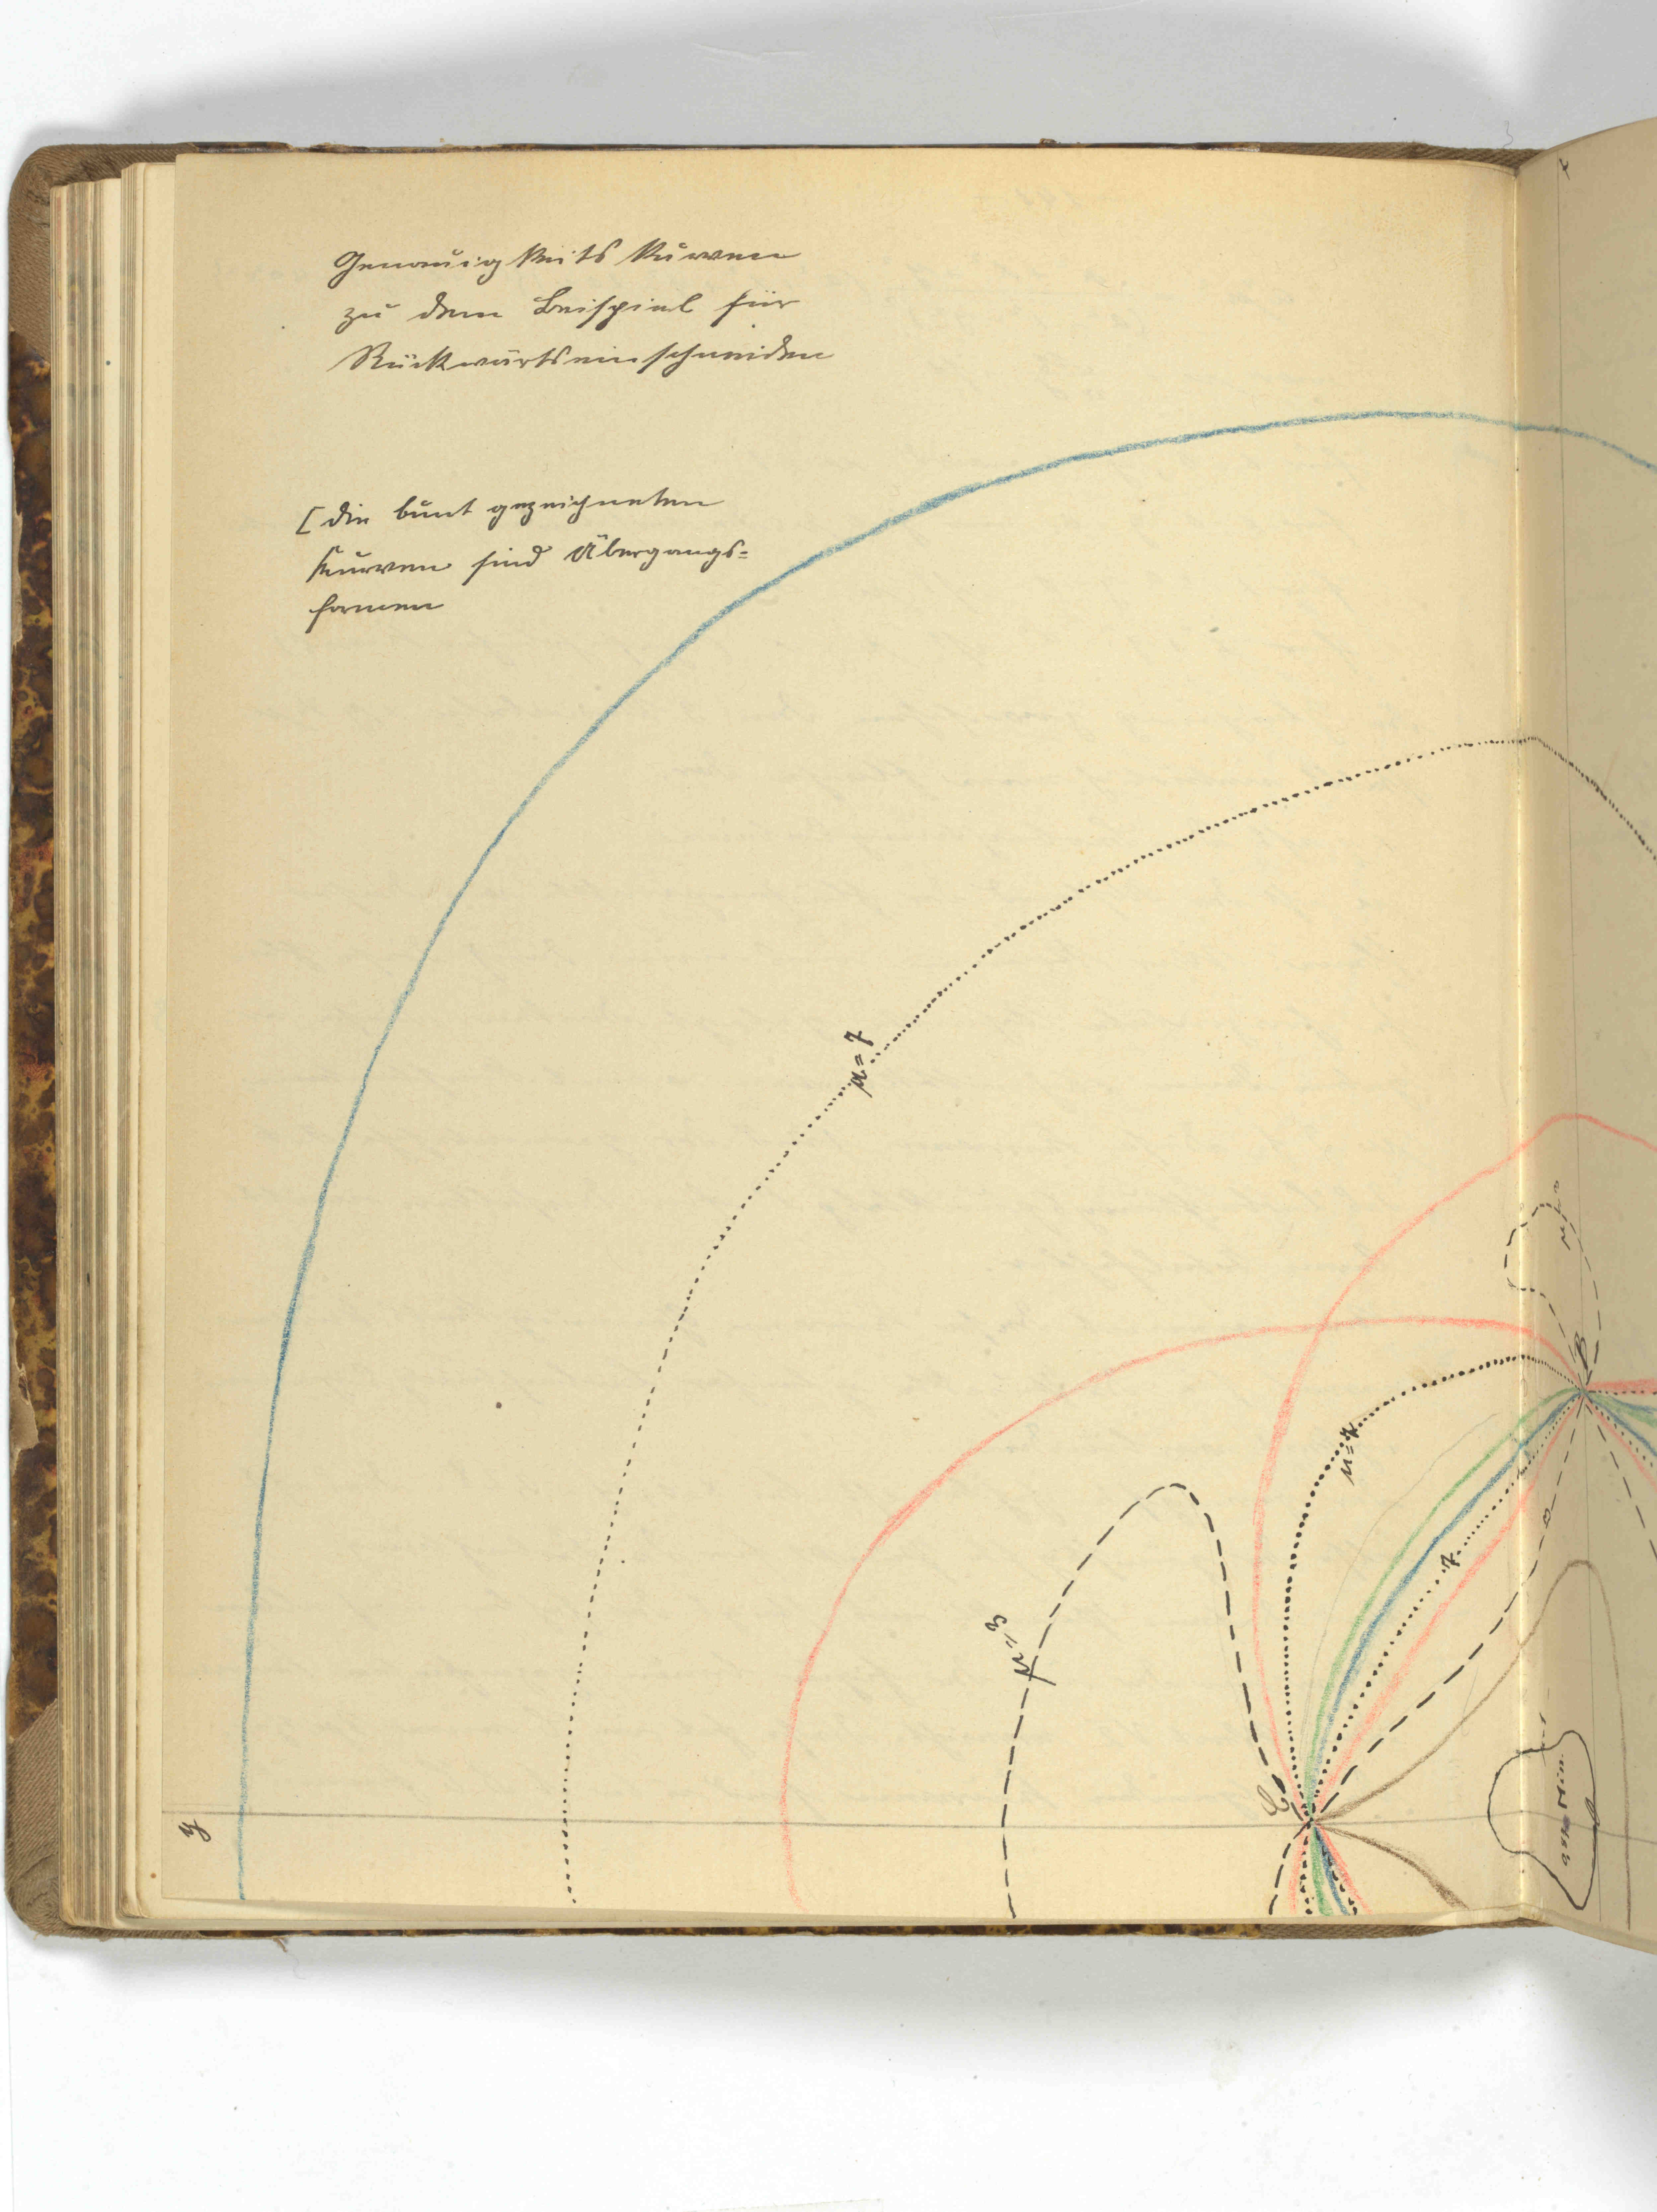 Genauigkeits Kurven
zu dem Beispiel für
Rückwärtseinschneiden
[die bunt gezeichneten
Kurven sind Übergangs=
formen
x
μ=7
B
μ=7
7
3
μ=3
C
abs. Min.
y